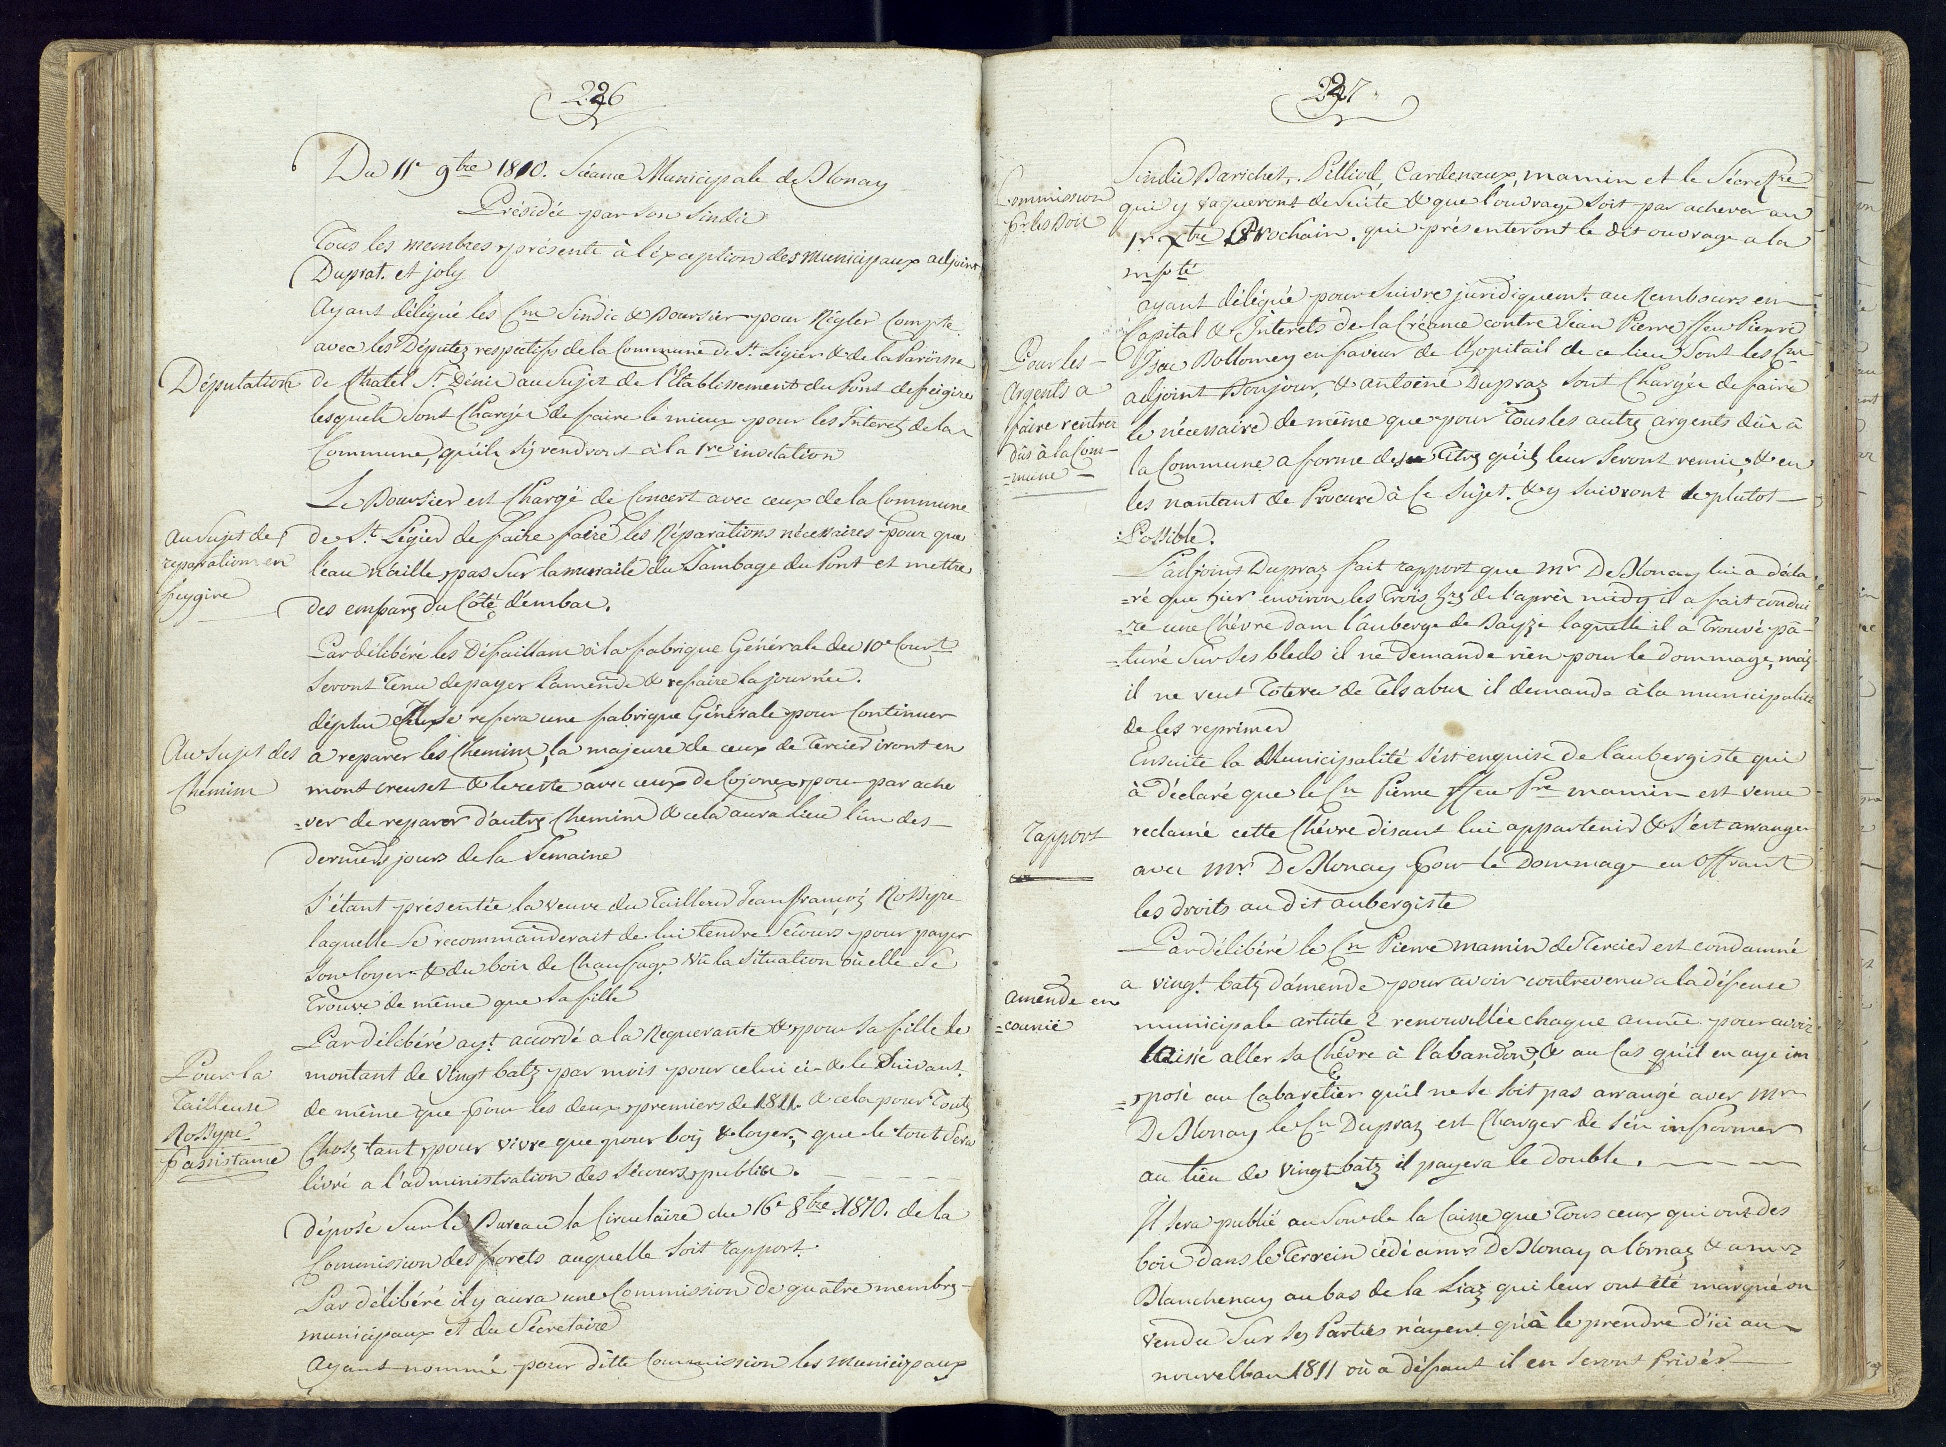 226
Du 11e 9bre 1810. Séance Municipale de Blonay
Présidée par son Sindic
Tous les membres présents à l'éxception des municipaux adjoint
Duprat. et joly
Ayant délégué les Cns Sindic & Boursier pour Régler Compte
avec les Députez respectifs de la Commune de St. Légier & de la Paroisse
Députation
de Chatel St Dénis au Sujet de l'Etablissement du Pont de feigire
lesquels Sont Chargés de faire le mieux pour les Interets de la
Commune, qu'ils s'y rendrons à la 1re invitation
Le Boursier est Chargé de Concert avec ceux de la Commune
Au Sujet des
reparations en
feygire
de St. Légier de faire faire les Réparations nécessaires pour que
l'eau n'aille pas Sur la muraile du Jambage du Pont et mettre
des emparz du Côté d'embas.
Par délibéré les Défaillans à la fabrique Générale des 10e Court
Seront Tenu de payer l'amende & refaire la journée.
déplus Il se refera une fabrique Générale pour Continuer
Au Sujet des
Chemins
a reparer les Chemins, la majeure de ceux de Tercier iront en
mont creuset & le reste avec ceux de Cojonex pour par ache
-ver de reparer d'autrz Chemins & cela aura lieu l'un des
derniers jours de la Semaine
S'étant présentée la veuve du Tailleur Jean françoiz Rossyre
laquelle Se recommanderait de lui tendre Sécours pour payer
Son loyer & du bois de Chaufage vû la Situation où elle Se
Trouve de même que Sa fille
Par délibéré ayt. accordé a la Requerante & pour Sa fille le
Pour la
Tailleuse
Rossyre
Passistame
montant de vingt batz par mois pour celui ci & le Suivant
de même que pour les deux premiers de 1811. & cela pour Toutz
Chosz tant pour vivre que pour boiz & loyer, que le tout Sera
livré a l'administration des Sécours publics.
déposé Sur le Bureau la Circulaire du 16e 8bre 1810. de la
Commission des forets auquelle Soit rapport.
Par délibéré il y aura une Commission de quatre membrz
municipaux et du Sécretaire
Ayant nommé pour ditte Commission les municipaux
227
Commission
pr. les Bois
Sindic Barichet, Pilliod Cardenaux, mamin et le Sécretre
qui y vaqueront de Suite & que l'ouvrage Soit par achever au
1r Xbre Prochain. qui présenteront le dit ouvrage a la
mpté
ayant délégué poursuivre juridiquemt. au Rembours en
Capital & Interets de la Créance contre Jean Pierre ffeu Pierre
Pour les
Argents a
faire rentrer
dûs à la Com-
-mune
Isac Bollomey en faveur de l'hopitail de ce lieu Sont les Cns
adjoint Bonjour, & antoine Dupraz Sont Chargés de faire
le nécessaire de même que pour Tous les autrz argents dûs à
la Commune a forme des Titrz qu'ilz leur Seront remis, & en
les nantant de Procure à Ce Sujet. & y Suivront le plutot
Possible.
L'adjoint Dupraz fait rapport que Mr De Blonay lui a décla
-ré que hier environ les Trois hrz de l'après midy il a fait condui
-re une Chévre dans l'auberge de Bayze laquelle il a Trouvé pâ-
-turé Sur Ses bleds il ne demande rien pour le dommage, mais
il ne veut Tolerer de Tels abus il demande à la municipalité
de les reprimer
Ensuite la Municipalité S'est enquise de l'aubergiste qui
à déclaré que le Cn Pierre ffeu Pre mamin est venu
rapport
reclamé cette Chévre disant lui appartenir & S'est arranger
avec Mr. De Blonay pour le Dommage en offrant
les droits au dit aubergiste
Par délibéré le Cn Pierre mamin de Tercier est condamné
amende en
-courüe
a vingt batz d'amende pour avoir contrevenu a la défense
municipale article 2 renouvellée chaque année pour avoir
laissé aller Sa Chévre à l'abandon, & au Cas qu'il en aye im
-posé au Cabaretier qu'il ne Se Soit pas arrangé avec Mr
De Blonay le Cn Dupraz est Charger de S'en informer
au lieu de vingt batz il payera le double.
Il Sera publié au Son de la Caisse que Tous ceux qui ont des
bois dans le Terrein cédé a mr De Blonay a l'ornaz & a mr
Blanchenay au bas de la Liaz qui leur ont été marqué ou
vendu Sur Ses Parties n'ayent qu'à le prendre d'ici au
nouvel an 1811 où a défaut il en Seront Privés